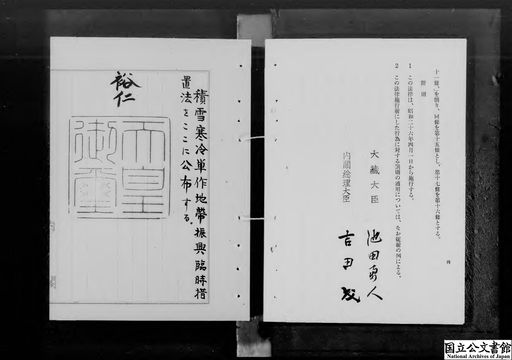 十一條」を削り、同條を第十五條とし、第十七條を第十六條とする。
附則
1 この法律は、昭和二十六年四月一日から施行する。
2 この法律施行前にした行為に対する罰則の適用については、なお従前の例による。
大藏大臣 池田勇人
内閣総理大臣 吉田茂
四
積雪寒冷單作地帶振興臨時措
置法をここに公布する。
裕仁
天皇
御璽
国立公文書館
National Archives of Japan